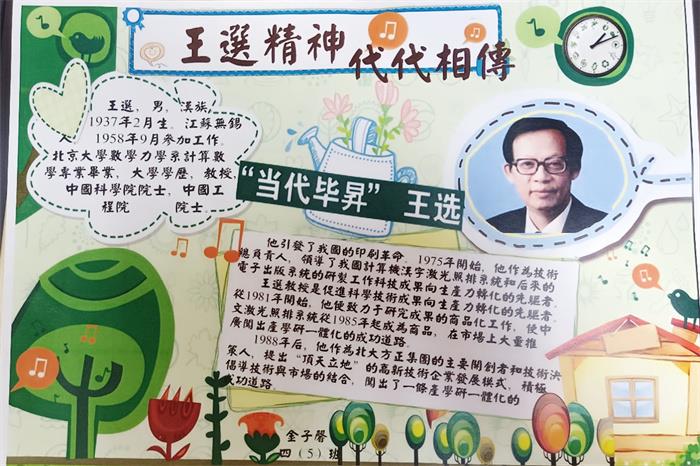 王選精神 代代相傳
王選，男，漢族，
人，1937年2月生。江蘇無錫
1958年9月參加工作。
北京大學數學力學系計算數
學專業畢業，大學學歷，教授，
中國科學院院士，中國工
程院 院士。
“当代毕昇”王选
他引發了我國的印刷革命。1975年開始，他作為技術
總負責人，領導了我國計算機漢字激光照排系統和后來的
電子出版系統的研製工作科技成果向生產力轉化的先驅者。
王選教授是促進科學技術成果向生產力轉化的先驅者。
從1981年開始，他便致力于研究成果的商品化工作，使中
文激光照排系統從1985年起成為商品，在市場上大量推
廣闖出產學研一體化的成功道路。
1988年后，他作為北大方正集團的主要開創者和技術決
策人，提出“頂天立地”的高新技術企業發展模式，積極
倡導技術與市場的結合，闖出了一條產學研一體化的
成功道路。
金子馨
四（5）班